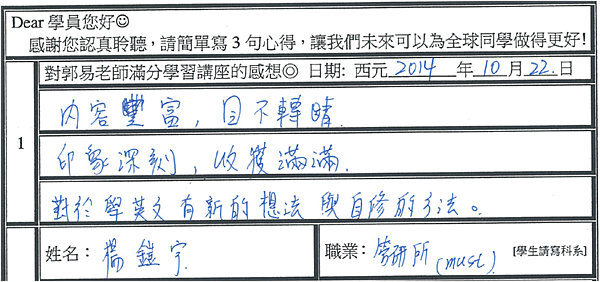 Dear 學員您好☺
感謝您認真聆聽，請簡單寫 3 句心得，讓我們未來可以為全球同學做得更好!
對郭易老師滿分學習講座的感想◎ 日期: 西元 2014 年 10 月 22. 日
1
內容豐富，目不轉晴.
印象深刻，收獲滿滿.
對於學英文有新的想法與自修的方法。
姓名： 楊鎧宇
職業： 管研所 (must). [學生請寫科系]